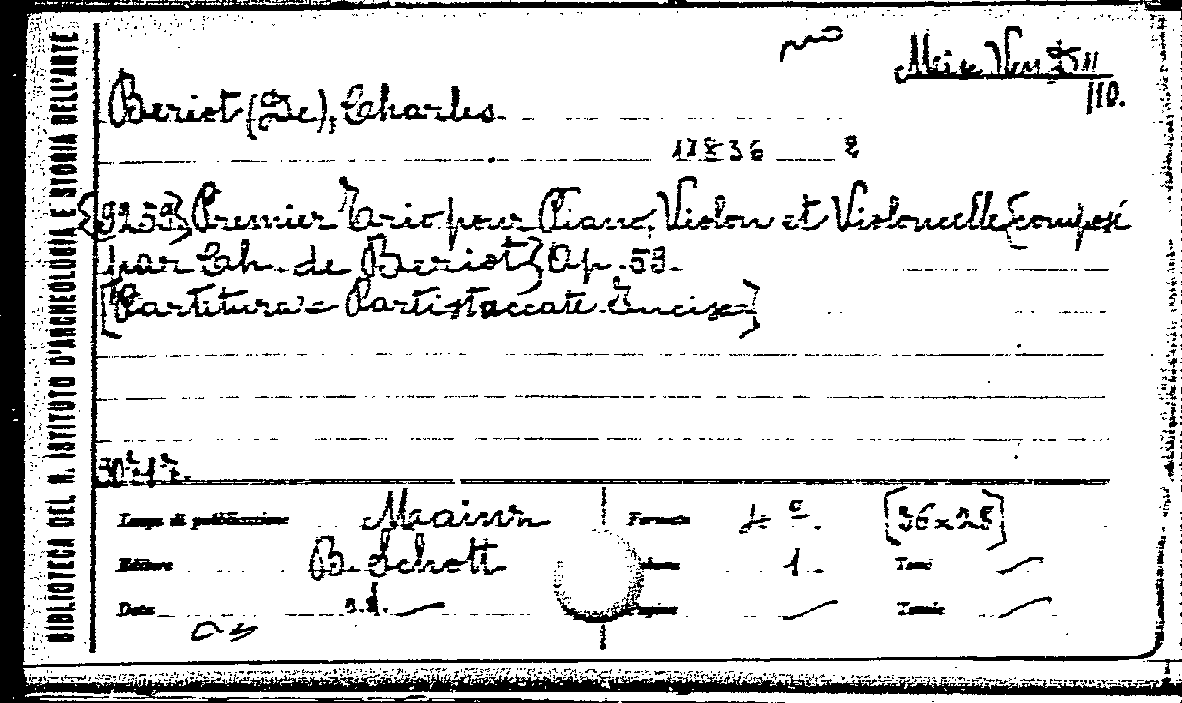 BIBLIOTECA DEL R. ISTITUTO D'ARCHEOLOGIA E STORIA DELL'ARTE
110.
Beriot (De), Charles
{9259} Premier Trio pour Piano, Violon et Violoncelle {composé
par Ch. de Beriot} Op. 59.
[Partitura e Parti staccate. Incise]
Luogo di pubblicazione Mainz Formato 4° [36x25]
Editore B. Schott Volume 1. Tomi
Data s.d. Pagine Tavole